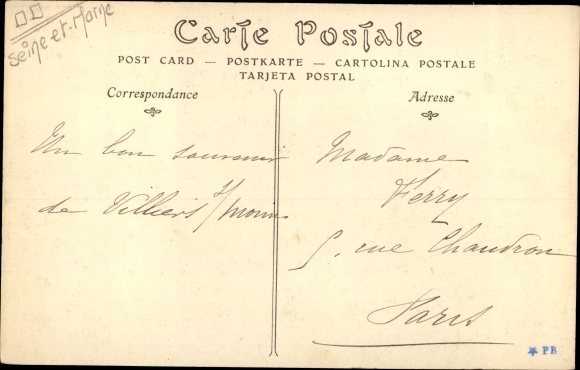 Seine-et-Marne
Carte Postale
POST CARD — POSTKARTE — CARTOLINA POSTALE
TARJETA POSTAL
Correspondance
Adresse
Un bon souvenir
de Villiers s/ Morin
Madame
Ferry
5, rue Chaudron
Paris
PB